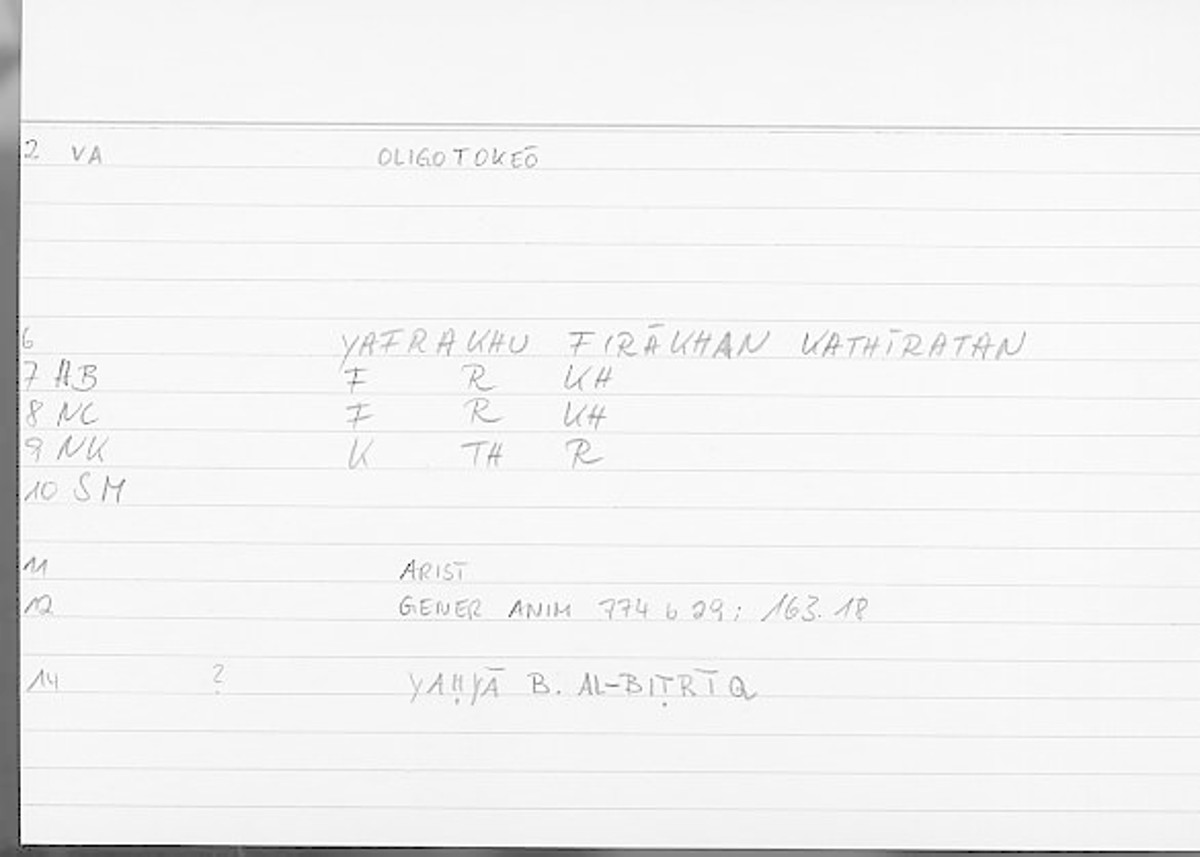 2 VA OLIGOTOKEŌ
6 YAFRAKHU FIRĀKHAN KATHĪRATAN
7 AB F R KH
8 NC F R KH
9 NK K TH R
10 SM
11 ARIST
12 GENER ANIM 774 b 29; 163.18
14 ? YAḤYĀ B. AL-BIṬRĪQ